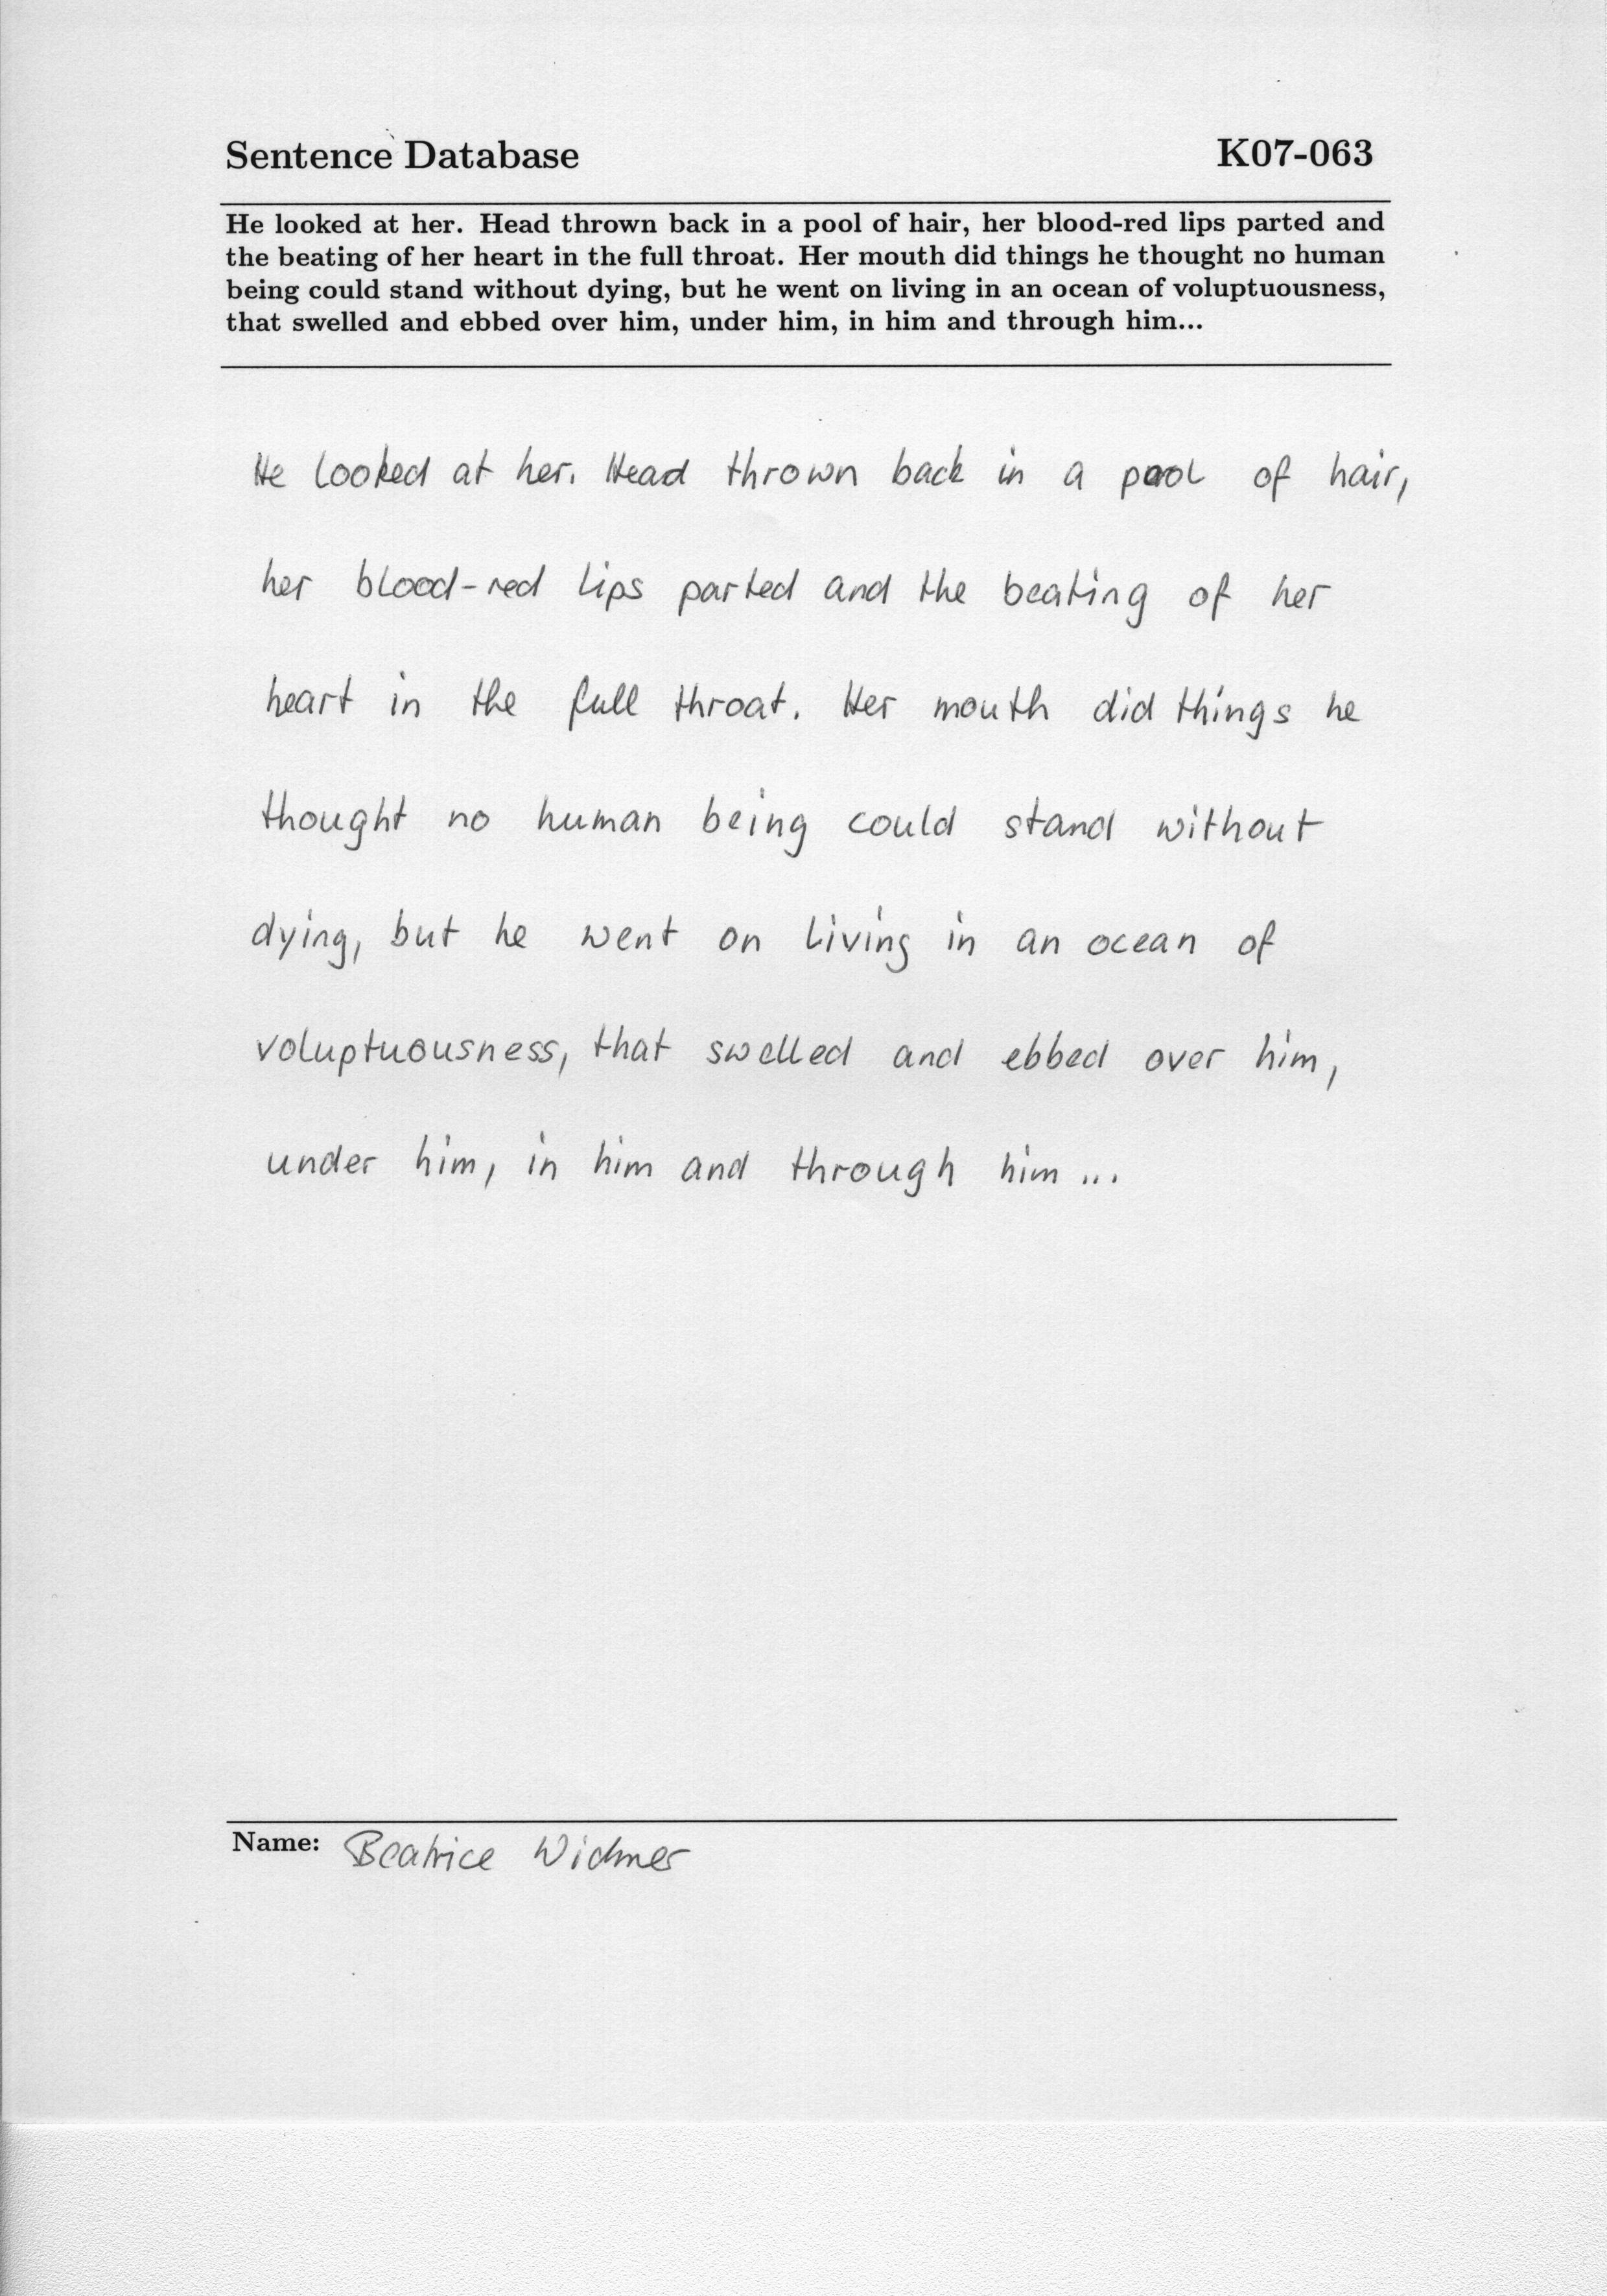 Sentence Database K07-063
He looked at her. Head thrown back in a pool of hair, her blood-red lips parted and
the beating of her heart in the full throat. Her mouth did things he thought no human
being could stand without dying, but he went on living in an ocean of voluptuousness,
that swelled and ebbed over him, under him, in him and through him...
He looked at her. Head thrown back in a pool of hair,
her blood-red lips parted and the beating of her
heart in the full throat. Her mouth did things he
thought no human being could stand without
dying, but he went on living in an ocean of
voluptuousness, that swelled and ebbed over him,
under him, in him and through him...
Name: Beatrice Widmer